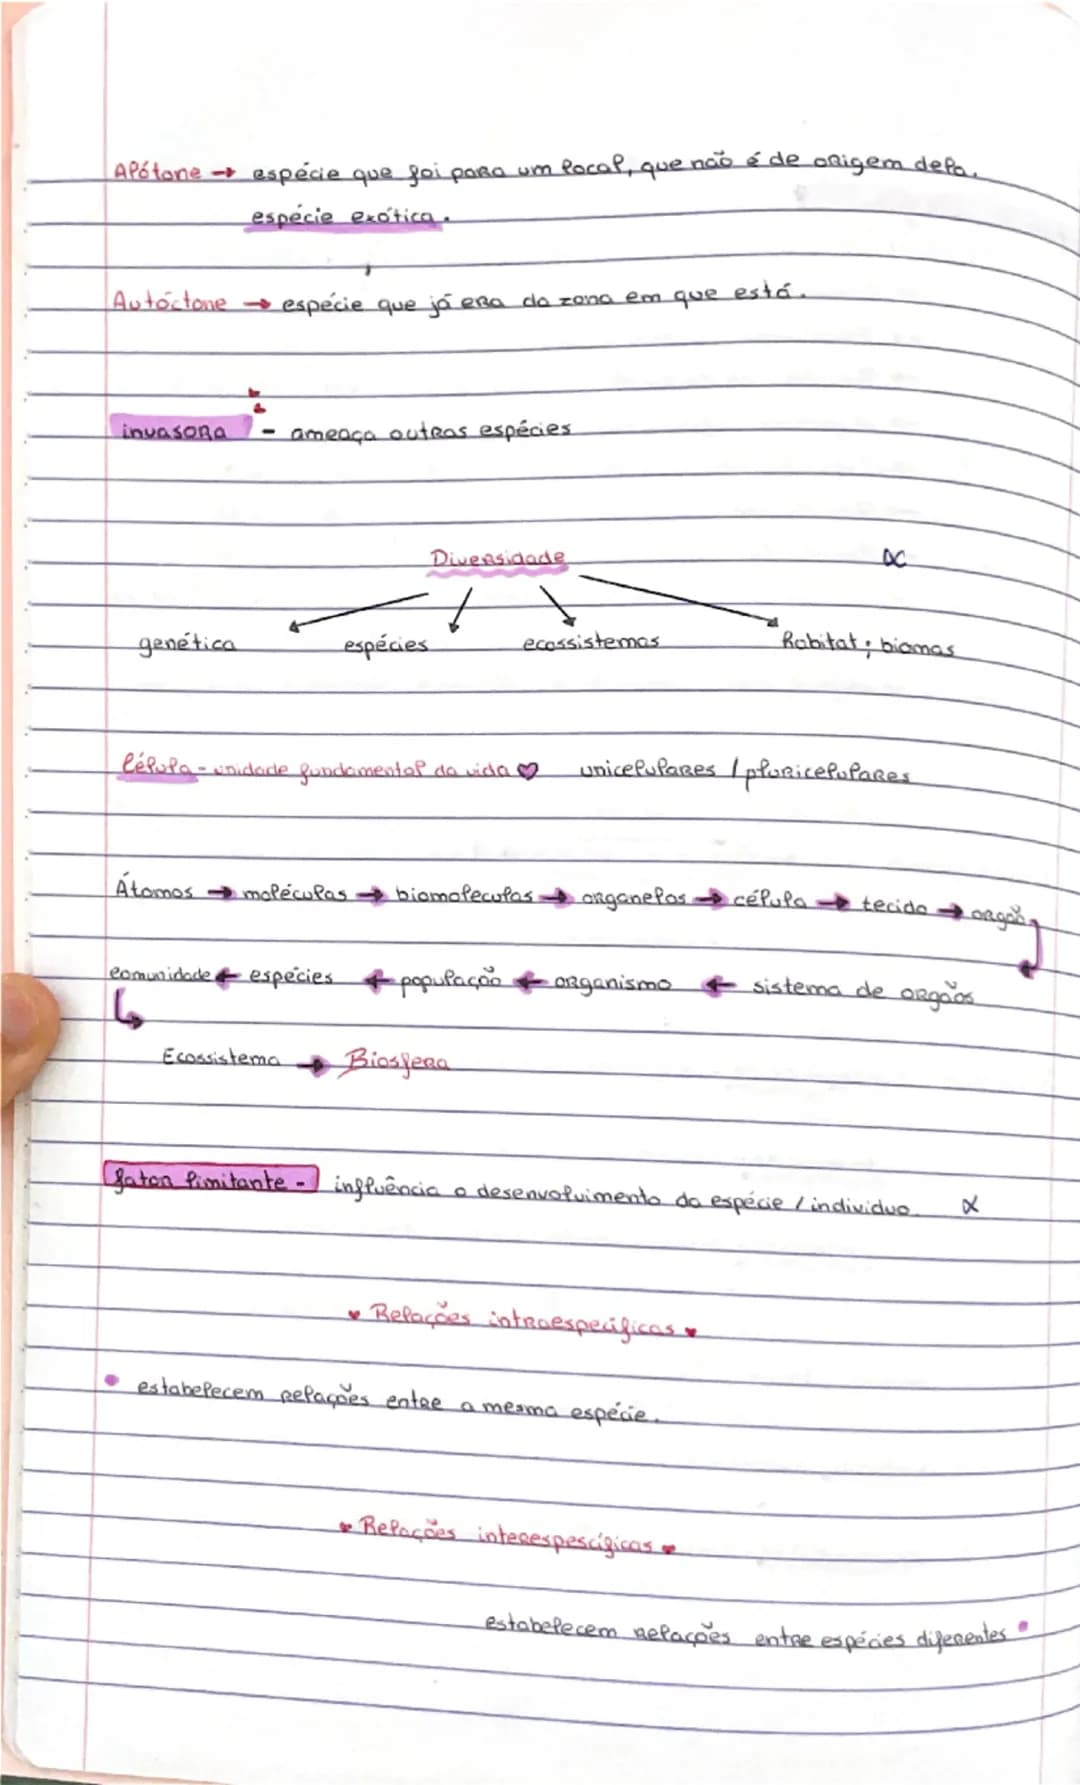 Alótone → espécie que foi para um local, que não é de origem dela.
espécie exótica.
Autóctone → espécie que já era da zona em que está.
invasora - ameaça outras espécies
Diversidade
genética espécies ecossistemas habitat; biomas
Célula - unidade fundamental da vida ♡ unicelulares / pluricelulares
Átomos → moléculas → biomoleculas → organelos → célula → tecido → orgão
comunidade ← espécies ← população ← organismo ← sistema de orgãos
Ecossistema → Biosfera
fator limitante - influência o desenvolvimento da espécie / individuo
♥ Relações intraespecificas ♥
• estabelecem relações entre a mesma espécie.
♥ Relações interespescificas ♥
estabelecem relações entre espécies diferentes •